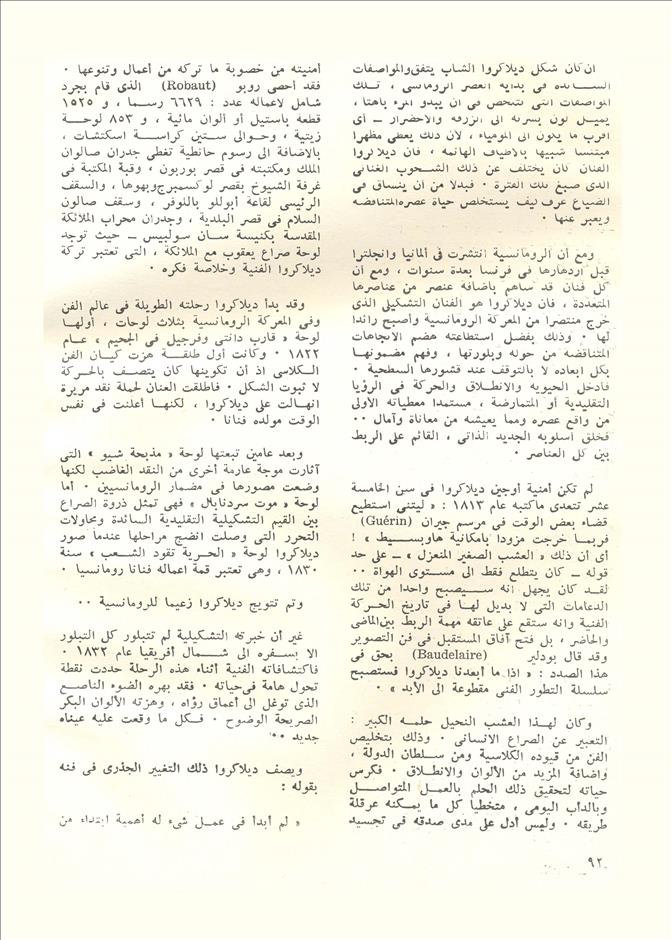 ان كان شكل ديلاكروا الشاب يتفق والمواصفات
السائدة فى بداية العصر الرومانسى ، تلك
المواصفات التى تتلخص فى أن يبدو المرء باهتا ،
يميل لون بشرته الى الزرقة والاخضرار ــ أى
أقرب ما يكون الى المومياء ، لأن ذلك يعطى مظهرا
ميتنسا شبيها بالأطياف الهائمة ، فان ديلاكروا
الفنان كان يختلف عن ذلك الشحوب الفنانى
الذى صبغ تلك الفترة ٠ فبدلا من أن ينساق فى
الضياع عرف كيف يستخلص حياة عصره المتناقضة
ويعبر عنها ٠
ومع أن الرومانسية انتشرت فى ألمانيا وانجلترا
قبل ازدهارها فى فرنسا بعدة سنوات ، ومع أن
كل فنان قد ساهم باضافة عنصر من عناصرها
المتعددة ، فان ديلاكروا هو الفنان التشكيلى الذى
خرج منتصرا من المعركة الرومانسية وأصبح رائدا
لها ٠ وذلك بفضل استطاعته هضم الاتجاهات
المتناقضة من حوله وبلورتها ، وفهم مضمونها
بكل ابعاده لا بالتوقف عند قشورها السطحية ٠
فأدخل الحيوية والانطلاق والحركة فى الرؤيا
التقليدية أو المتمارضة ، مستمدا معطياته الأولى
من واقع عصره ومما يعيشه من معاناة وآمال ٠٠
فخلق أسلوبه الجديد الذاتى ، القائم على الربط
بين كل العناصر ٠
لم تكن أمنية أوجين ديلاكروا فى سن الخامسة
عشر تتعدى ماكتبه عام ١٨١٣ : « ليتنى استطيع
قضاء بعض الوقت فى مرسم جيران (Guérin)
فربما خرجت مزودا بامكانية هاوبسيط » !
أى أن ذلك « العشب الصغير المنعزل » ــ على حد
قوله ــ كان يتطلع فقط الى مستوى الهواة ٠٠
لقد كان يجهل انه سيصبح واحدا من تلك
الدعامات التى لا بديل لها فى تاريخ الحركة
الفنية وانه ستقع على عاتقه مهمة الربط بين الماضى
والحاضر ، بل فتح آفاق المستقبل فى فن التصوير
وقد قال بودلير (Baudelaire) بحق فى
هذا الصدد : « اذا ما أبعدنا ديلاكروا فستصبح
سلسلة التطور الفنى مقطوعة الى الأبد » ٠
وكان لهذا العشب النحيل حلمه الكبير :
التعبير عن الصراع الانسانى ٠ وذلك بتخليص
الفن من قيوده الكلاسية ومن سلطان الدولة ،
واضافة المزيد من الألوان والانطلاق ٠ فكرس
حياته لتحقيق ذلك الحلم بالعمل المتواصل
وبالدأب اليومى ، متخطيا كل ما يمكنه عرقلة
طريقه ٠ وليس أدل على مدى صدقه فى تجسيد
أمنيته من خصوبة ما تركه من أعمال وتنوعها ٠
فقد أحصى روبو (Robaut) الذى قام بجرد
شامل لاعماله عدد : ٦٦٢٩ رسما ، و ١٥٢٥
قطعة باستيل أو ألوان مائية ، و ٨٥٣ لوحة
زيتية ، وحوالى ستين كراسة اسكتشات ،
بالاضافة الى رسوم حائطية تغطى جدران صالون
الملك ومكتبته فى قصر بوربون ، وقبة المكتبة فى
غرفة الشيوخ بقصر لوكسمبرج وبهوها ، والسقف
الرئيسى لقاعة أبوللو باللوفر ، وسقف صالون
السلام فى قصر البلدية ، وجدران محراب الملائكة
المقدسة بكنيسة سان سولبيس ــ حيث توجد
لوحة صراع يعقوب مع الملائكة ، التى تعتبر تركة
ديلاكروا الفنية وخلاصة فكره ٠
وقد بدأ ديلاكروا رحلته الطويلة فى عالم الفن
وفى المعركة الرومانسية بثلاث لوحات ، أولها
لوحة « قارب دانتى وفرجيل فى الجحيم » عام
١٨٢٢ ٠ وكانت أول طلقة هزت كيان الفن
الكلاسى اذ أن تكوينها كان يتصف بالحركة
لا ثبوت الشكل ٠ فاطلقت العنان لحملة نقد مريرة
انهالت على ديلاكروا ، لكنها أعلنت فى نفس
الوقت مولده فنانا ٠
وبعد عامين تبعتها لوحة « مذبحة شيو » التى
آثارت موجة عارمة أخرى من النقد الغاضب لكنها
وضعت مصورها فى مضمار الرومانسيين ٠ أما
لوحة « موت سردنابال » فهى تمثل ذروة الصراع
بين القيم التشكيلية التقليدية السائدة ومحاولات
التحرر التى وصلت انضج مراحلها عندما صور
ديلاكروا لوحة « الحرية تقود الشعب » سنة
١٨٣٠ ، وهى تعتبر قمة اعماله فنانا رومانسيا ٠
وتم تتويج ديلاكروا زعيما للرومانسية ٠٠
غير أن خبرته التشكيلية لم تتبلور كل التبلور
الا بسفره الى شمال أفريقيا عام ١٨٣٢ ٠
فاكتشافاته الفنية أثناء هذه الرحلة حددت نقطة
تحول هامة فى حياته ٠ فقد بهره الضوء الناصع
الذى توغل الى أعماق رؤاه ، وهزته الألوان البكر
الصريحة الوضوح ٠ فكل ما وقعت عليه عيناه
جديد ٠٠
ويصف ديلاكروا ذلك التغيير الجذرى فى فنه
بقوله :
« لم أبدأ فى عمل شىء له أهمية ابتداء من
٩٢